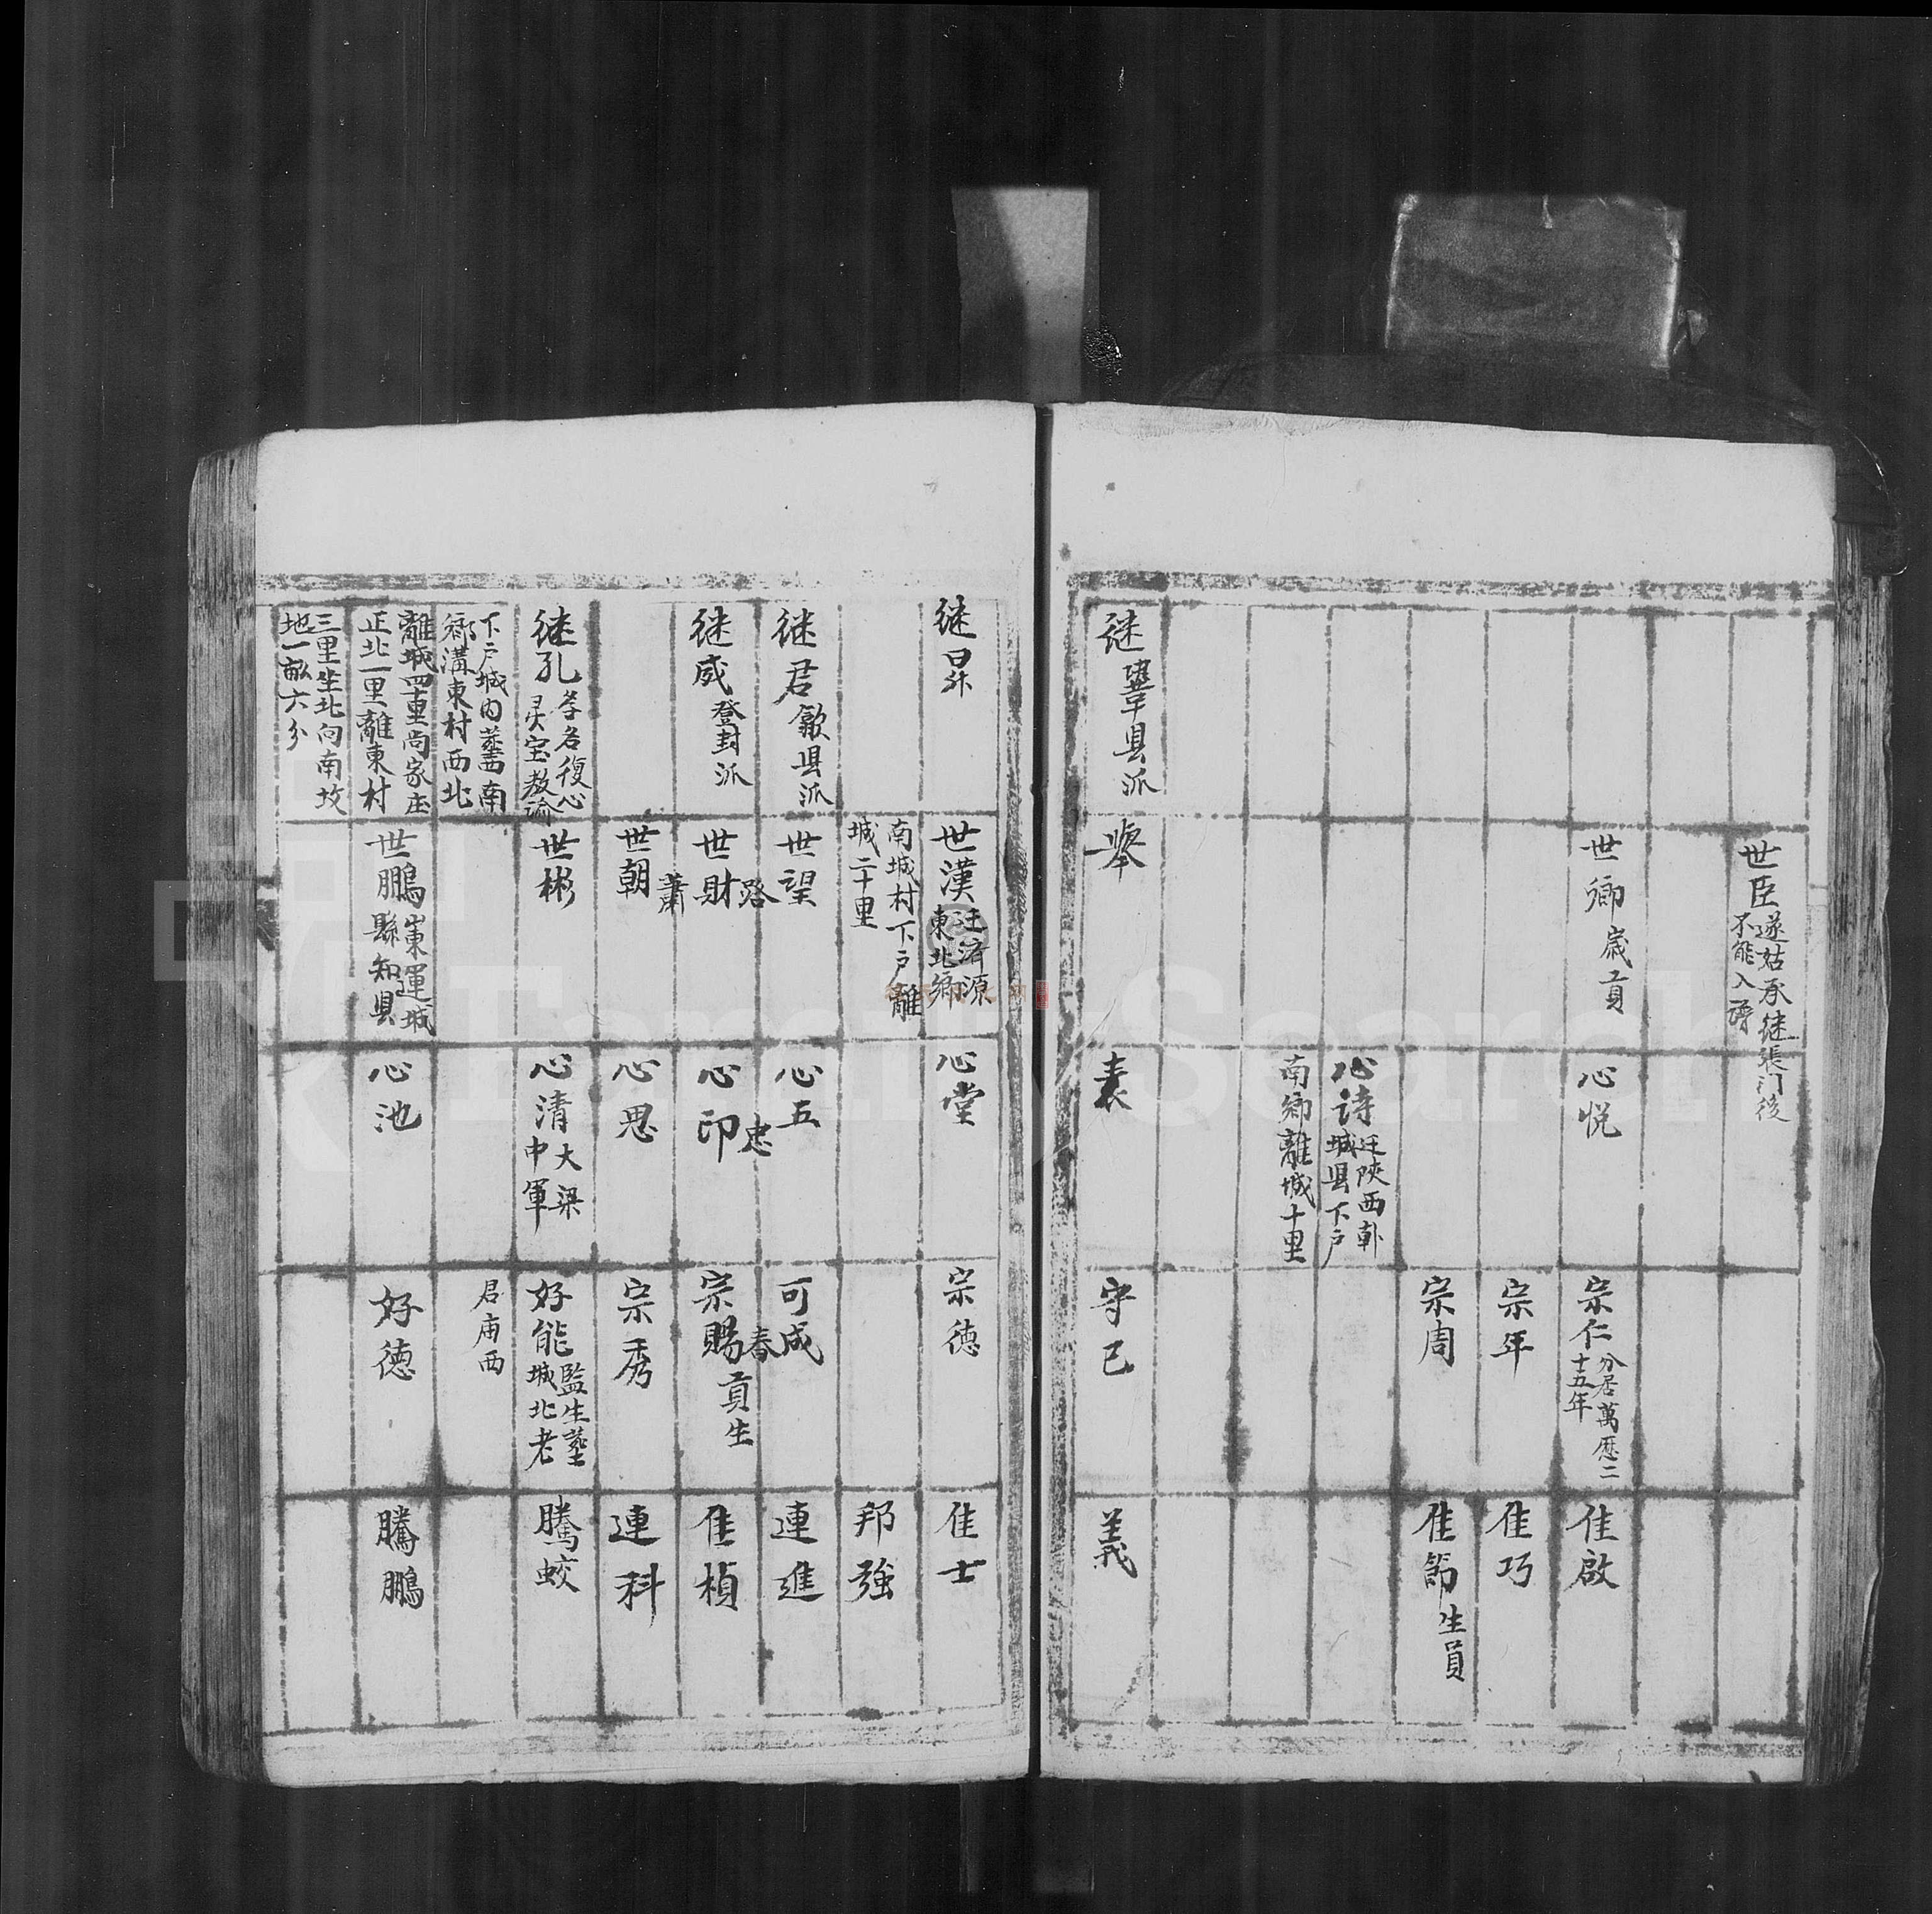 世臣
遂姑承继張门後
不能入譜
世卿歲貢
心悦
宗仁
分居萬歷二
十五年
佳啟
宗年
佳巧
宗周
佳節生員
心诗
迁陝西韩
城县下户
南鄉離城十里
继鞏县派
舉
表
守已
義
继昇
世漢
迁济源
東北鄉
心堂
宗德
佳士
南城村下户離
城二十里
邦强
继君歙县派
世望
心五
可成
連進
路
忠
春
继威登封派
世財
心印
宗賜貢生
佳楨
蕭
世朝
心思
宗秀
連科
继孔
孝名復心
灵宝教谕
世彬
心清
大梁
中軍
好能
監生塟
城北老
騰蛟
下户城内塟南
鄉溝東村西北
君庙西
離城四里尚家庄
正北一里離東村
世鵬
山東運城
縣知县
心池
好德
騰鵬
三里坐北向南坟
地一畝六分
FamilySearch